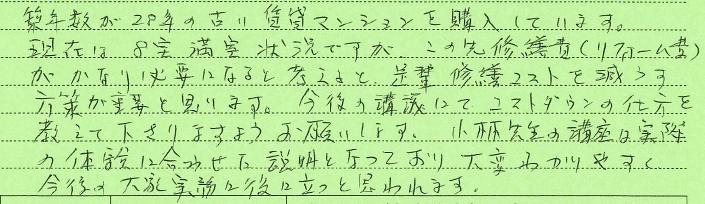 築年数が28年の古い賃貸マンションを購入しています。
現在は8室満室状況ですが、この先修繕費(リフォーム費)
がかなり必要になると考えると、是非修繕コストを減らす
方策が重要と思います。今後の講議にてコストダウンの仕方を
教えて下さりますようお願いします。小柳先生の講座は実際
の体験に合わせた説明となっており大変わかりやすく
今後の大家実務に役に立つと思われます。